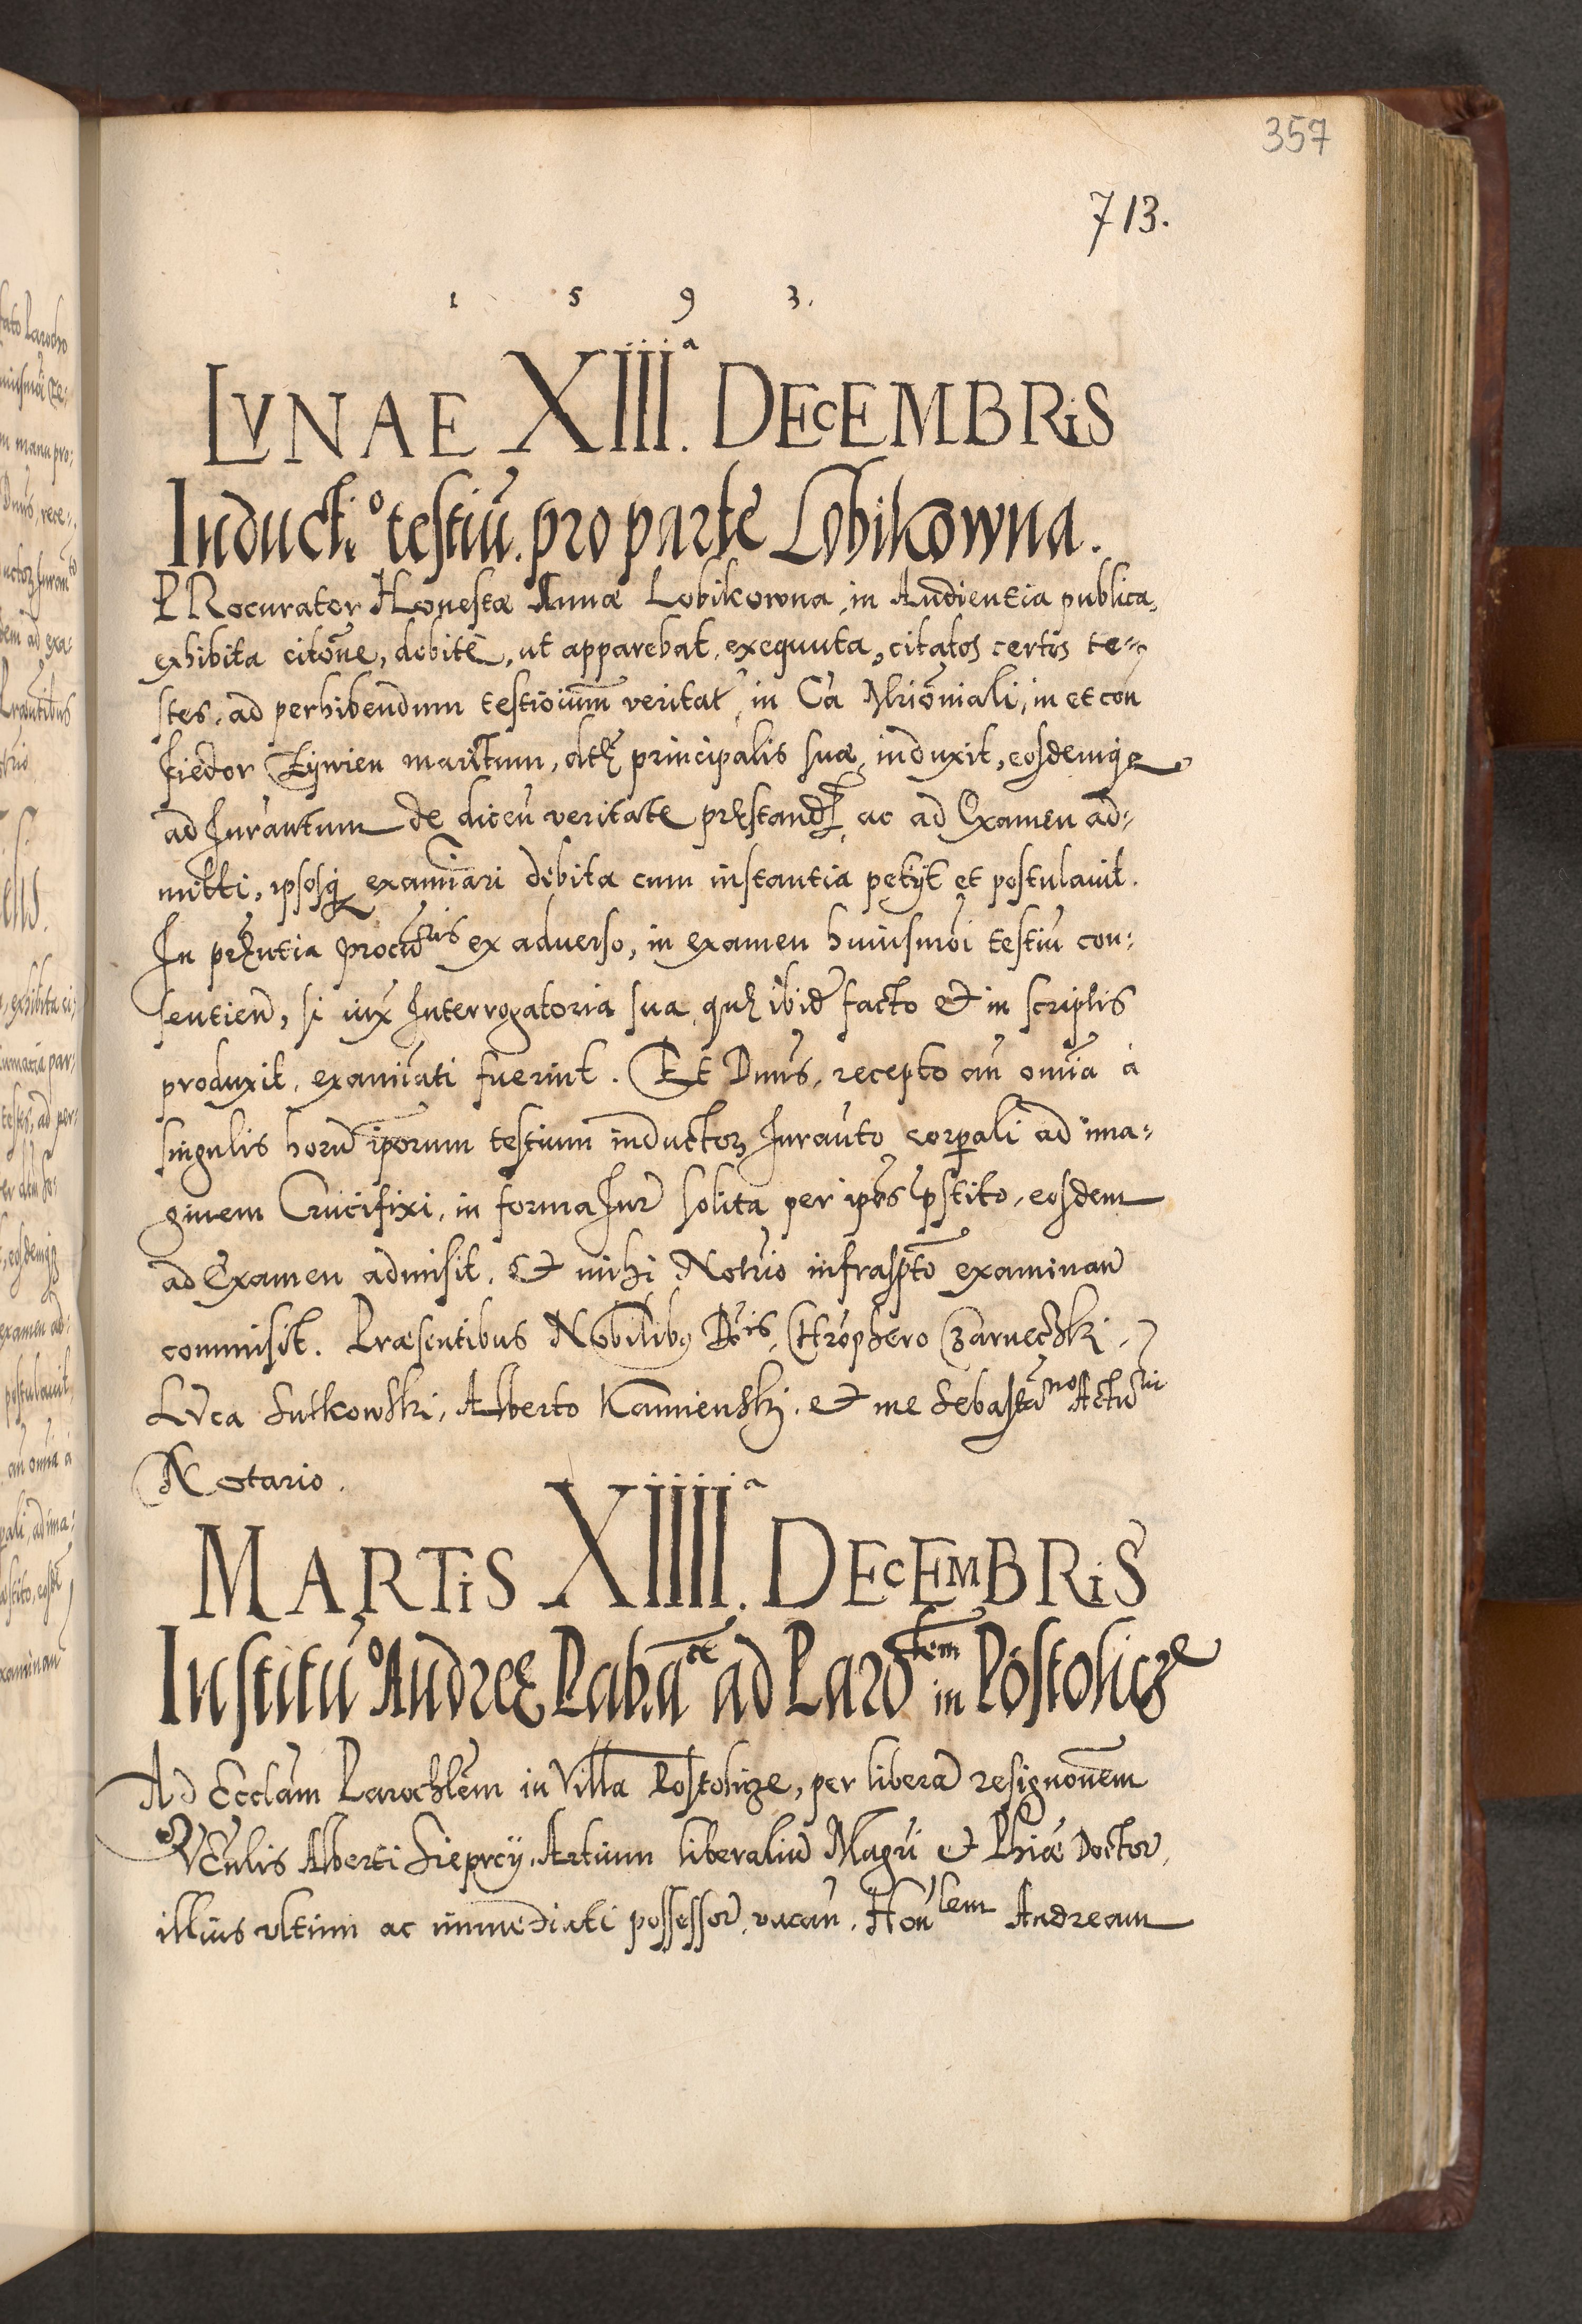 357
713.
1 5 9 3.
LVNAE XIII.ª DECEMBRiS
Inducti.º testiū. pro parte Lobikowna.
PRocurator Honestæ Annæ Lobikowna, in Audientia publica,
exhibita citōne, debite, ut apparebat, exequuta, citatos certos te=
stes, ad perhibendum testiōium veritat̃, in Cā Mrīoniali, in et con
Fiedor Zÿwien maritum, dctę principalis suæ, induxit, eosdemq̃
ad Iurāntum de dicen̄ veritate pręstand̃, ac ad Examen ad=
mitti, ipsosq̃ examiāri debita cum instantia petÿt et postulauit.
In pręntia procu͠ris ex aduerso, in examen huiusmōi testiū con=
sentien̄, si iux̃ Interrogatoria sua, quę ibid̃ facto et in scriptis
produxit, examinati fuerint. Et Dnūs, recepto an̄ omīa à
singulis horū ip̄orum testium inductoꝝ Iurāuto corpali ad ima=
ginem Crucifixi, in forma Iur̃ solita per ip̄os p̄stito, eosdem
ad Examen admisit, et mihi Notrīo infrasp̄to examinan̄
commisit. Præsentibus Nobilibꝰ Dōis, Chrōphero Czarneczki,
LVca Sutkowski, Alberto Kamienskj. et me Sebastīano Actū͠ii
Notario.
MARTiS XIIII.ª DECEMBRiS
Institū.º Andreę Rab.ā̃æ ad Parō͠lem in Postolicze
AD Ecclam̄ Parochlēm in Villa Postolicze, per liberā resignōnem
VEnlīs Alberti Sieprcÿ, Artium liberaliū Magrī et Phiæ Doctor̃,
illius vltimi ac immediati possessor̃, vacan̄. Honlem Andream